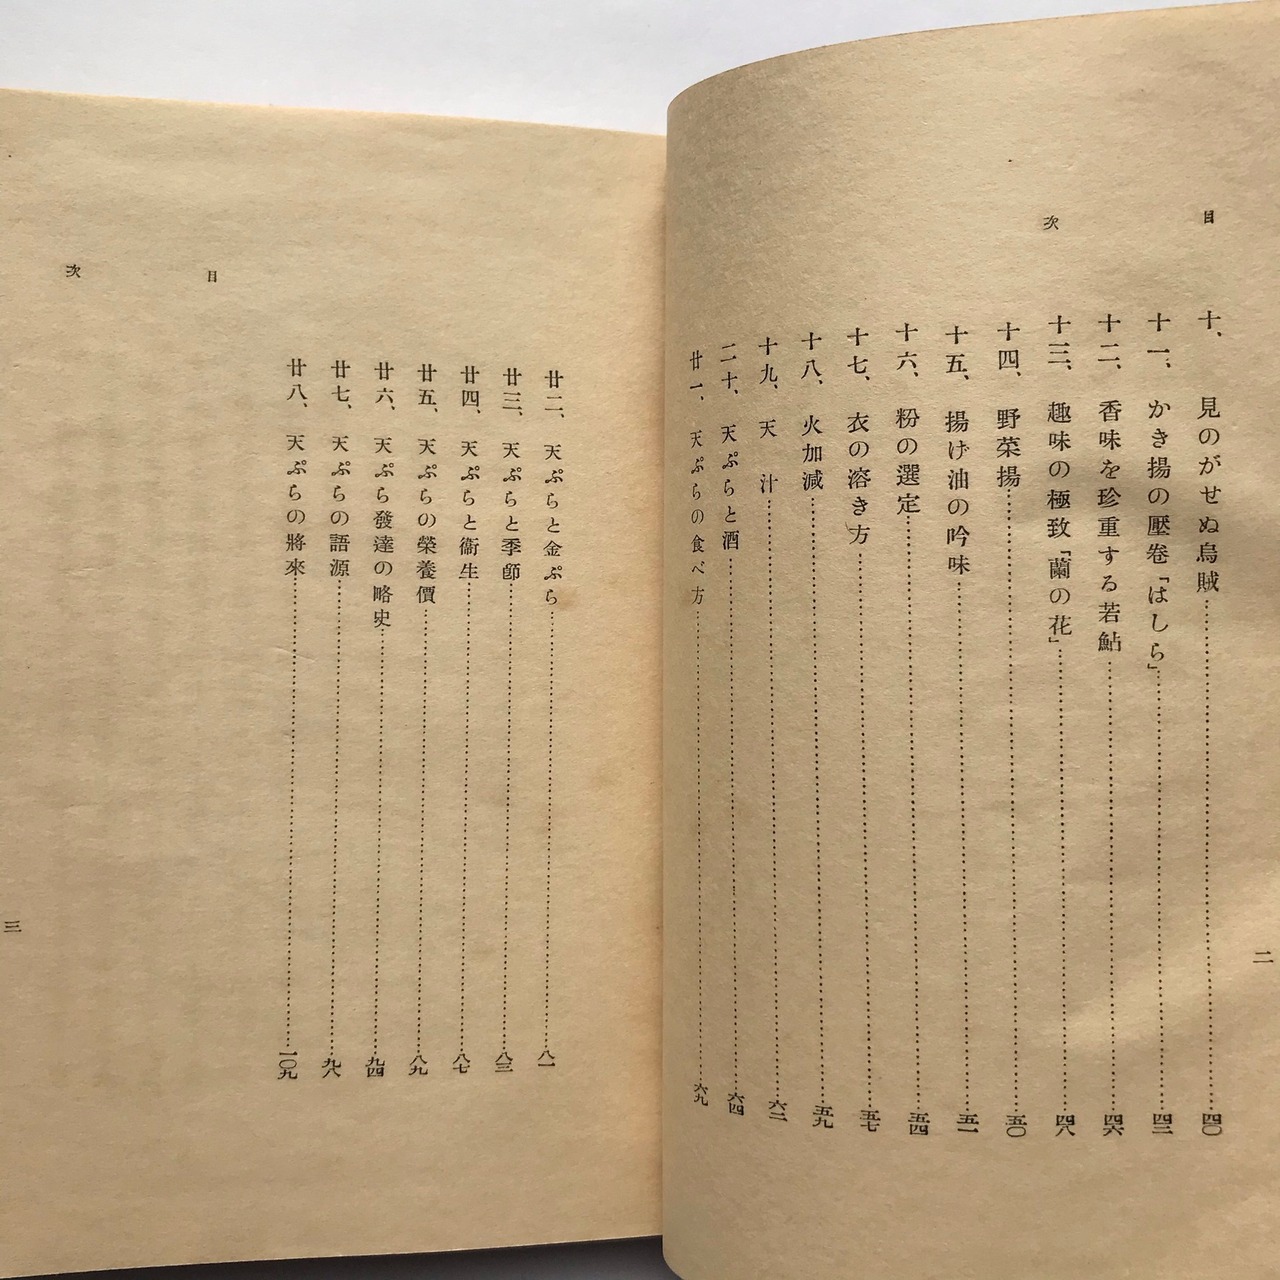 目次
十、見のがせぬ烏賊…四〇
十一、かき揚の壓卷「はしら」…四三
十二、香味を珍重する若鮎…四六
十三、趣味の極致「蘭の花」…四八
十四、野菜揚…五〇
十五、揚げ油の吟味…五一
十六、粉の選定…五四
十七、衣の溶き方…五七
十八、火加減…五九
十九、天汁…六二
二十、天ぷらと酒…六四
廿一、天ぷらの食べ方…六九
二
廿二、天ぷらと金ぷら…八一
廿三、天ぷらと季節…八三
廿四、天ぷらと衞生…八七
廿五、天ぷらの榮養價…八九
廿六、天ぷら發達の略史…九四
廿七、天ぷらの語源…九八
廿八、天ぷらの將來…一〇九
目次
三